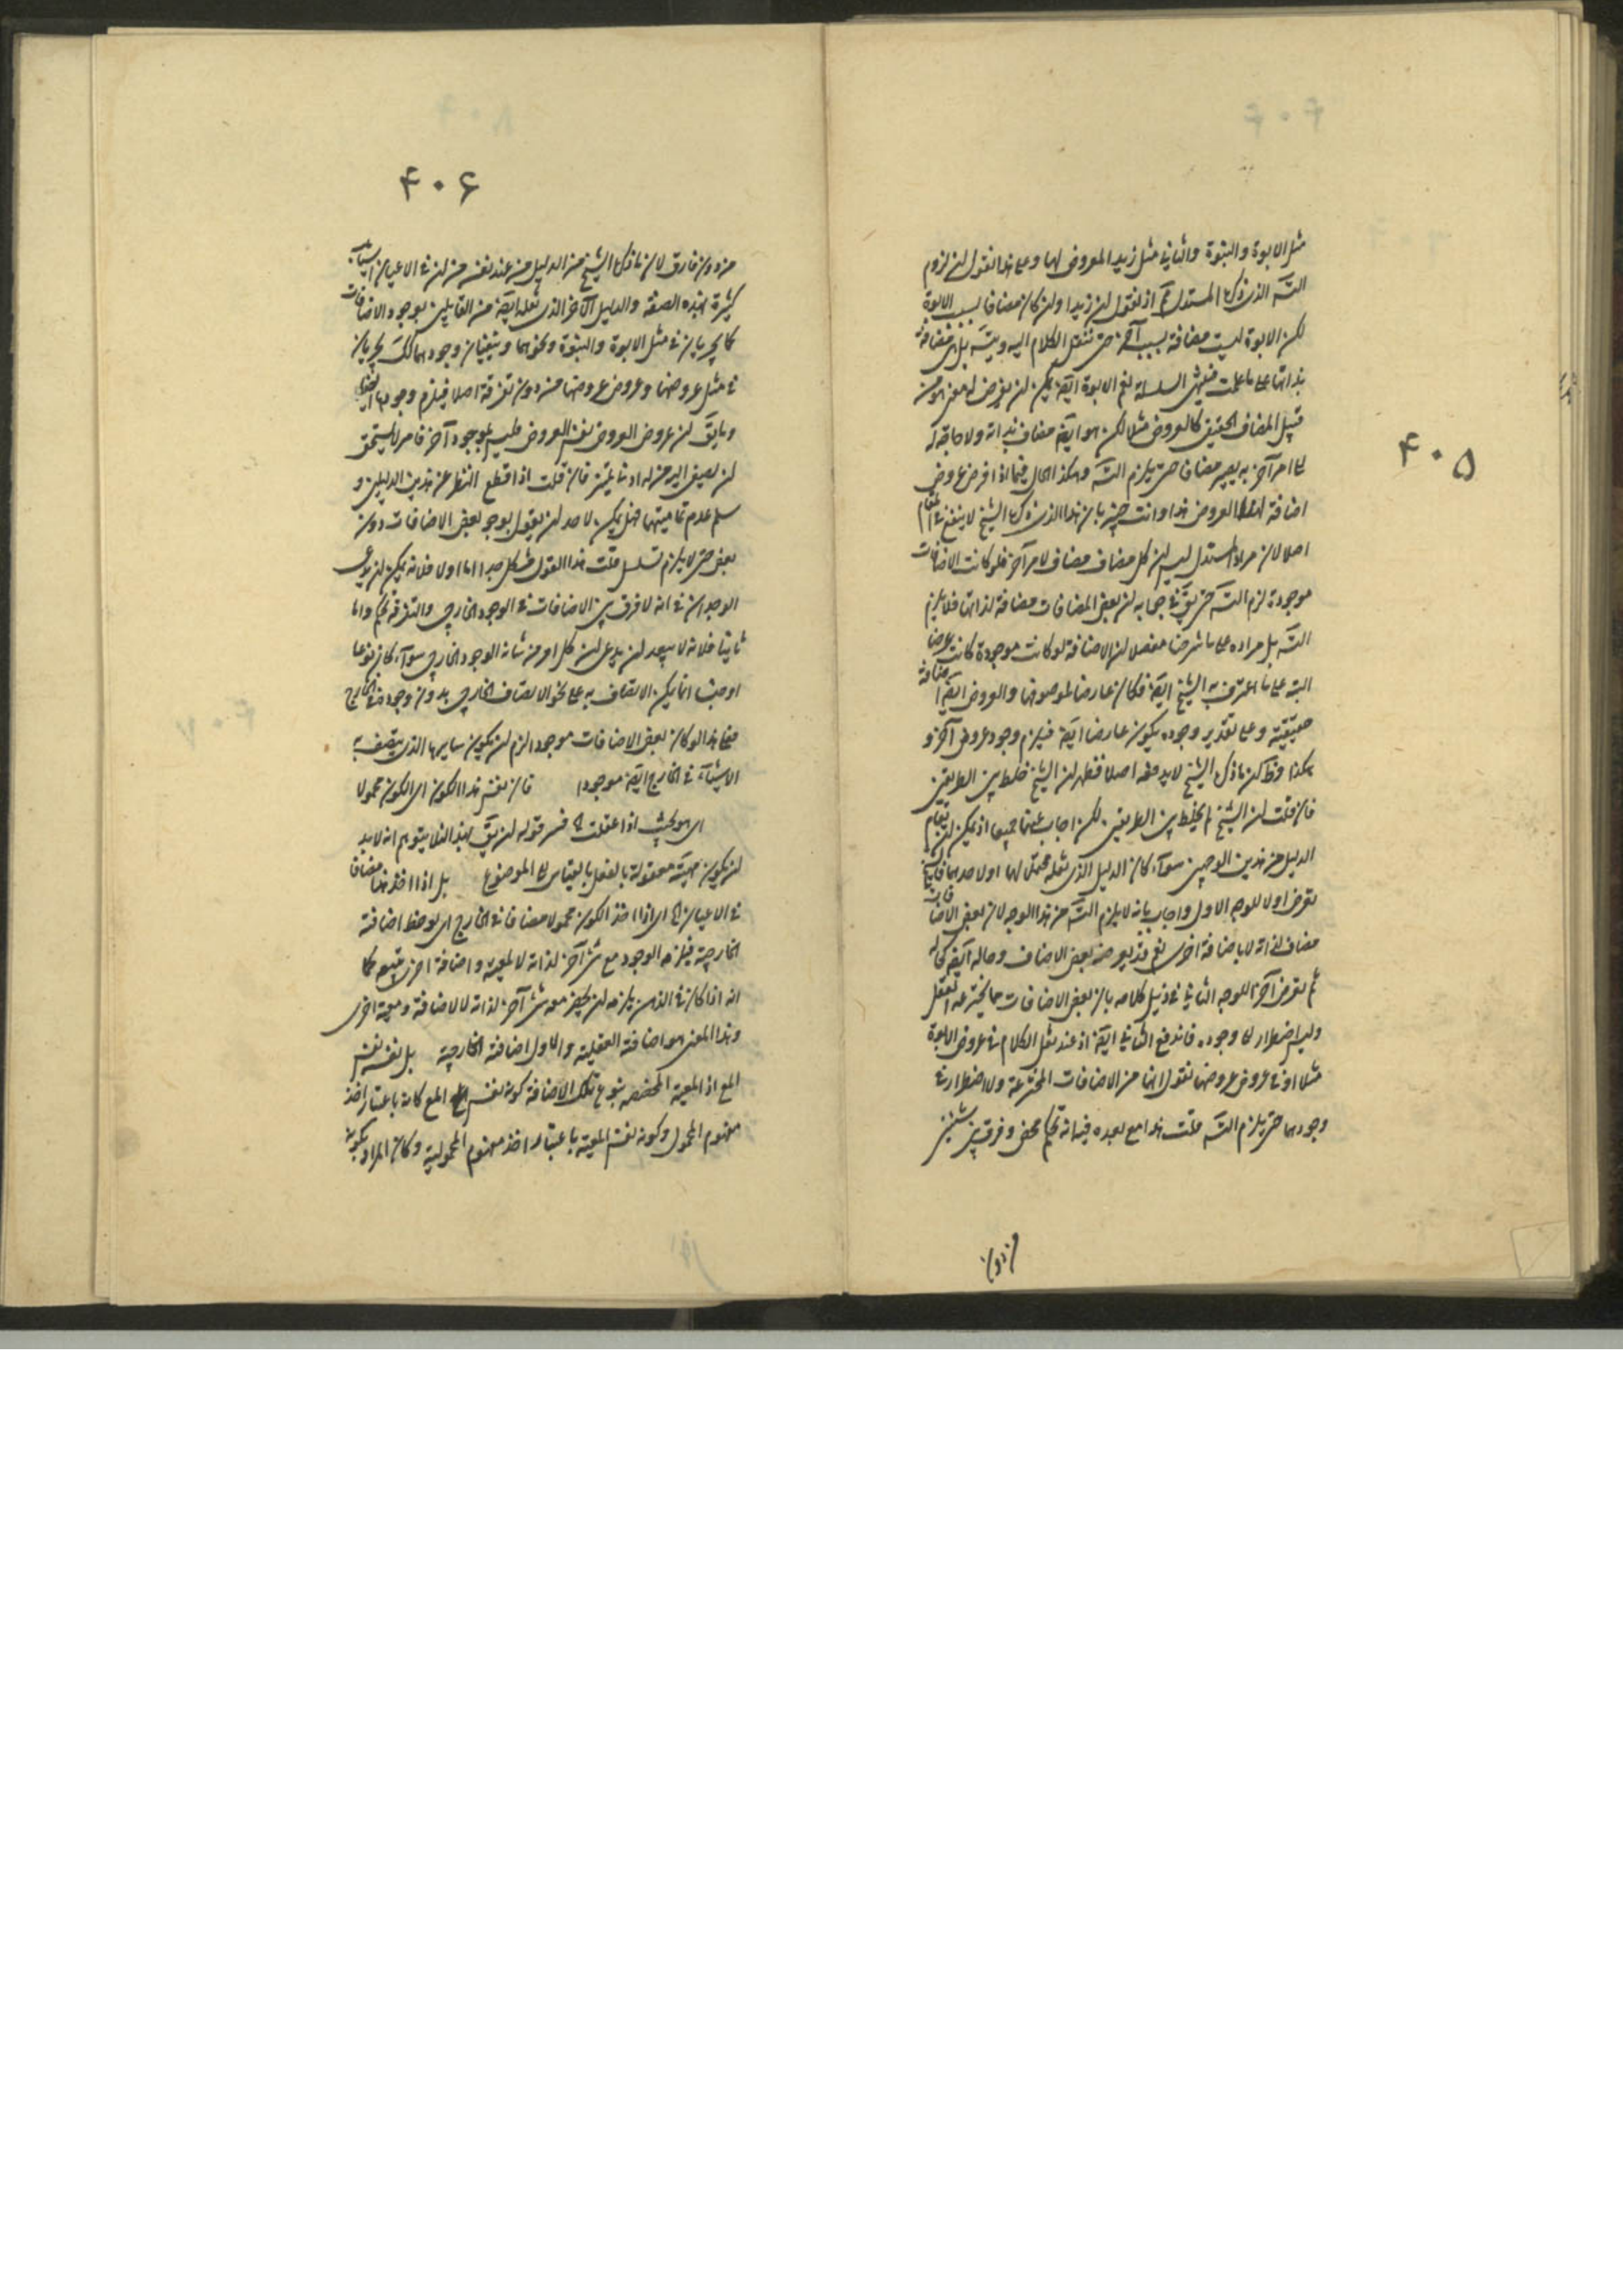 ۴۰۵
مثل الابوة والبنوة والثاني مثل زيد المعروض لها وعلى هذا نقول ان لزوم
التسه الذي ذكره المستدل مم اذ نقول ان زيدا وان كان مضافا بسبب الابوة
لكن الابوة ليست مضافة بسبب آخر حتى ننقل الكلام اليه ويتسه بل هي مضافة
بذاتها على ما علمت فينتهي السلسلة نعم الابوة ايضه يمكن ان يعرض له معنى هو من
قبيل المضاف الحقيقي كالعروض مثلا لكن هو ايضه مضاف بذاته ولا حاجة له
الى امر آخر به يصير مضافا حتى يلزم التسه وهكذا الحال فيما اذا فرض عروض
اضافة العروض هذا وانت خبير بان هذا الذي ذكره الشيخ لا ينفع في المقام
اصلا لان مراد المستدل ليس ان كل مضاف مضاف لامر آخر فلو كانت الاضافات
موجودة لزم التسه حتى يقه في جوابه ان بعض المضافات مضافة لذاتها فلا يلزم
التسه بل مراده على ما شرحنا مفصلا ان الاضافة لو كانت موجودة كانت عرضا
البتة على ما اعترف به الشيخ ايضه فكان عارضا لموصوفها والعروض ايضه اضافة
حقيقية وعلى تقدير وجوده يكون عارضا ايضه فيلزم وجود عروض آخر و
هكذا وظ ان ما ذكره الشيخ لا يدفعه اصلا فظهر ان الشيخ خلط بين الطريقين
فان قلت ان الشيخ لم يخلط بين الطريقين لكن اجاب عنهما جميعا اذ يمكن ان يقام
الدليل من هذين الوجهين سوآء كان الدليل الذي نقله محتملا لهما او لاحدهما
تعرض اولا للوجه الاول واجاب بانه لا يلزم التسه من هذا الوجه لان بعض الاضافات
مضاف لذاته لا باضافة اخرى نعم قد يعرضه بعض الاضاف وحاله ايضه كحاله
ثم تعرض آخرا للوجه الثاني في ذيل كلامه بان بعض الاضافات مما يخترعه العقل
وليس اضطرار الى وجوده فاندفع الثاني ايضه اذ عند نقل الكلام في عروض الابوة
مثلا او في عروض عروضها نقول انها من الاضافات المخترعة ولا اضطرار في
وجودها حتى يلزم التسه قلت هذا مع بعده فيه انه تحكم محض وفرق بين شيئين
من دون
۴۰۶
من دون فارق لان ما ذكره الشيخ من الدليل من عند نفسه من ان في الاعيان اشياء
كثيرة بهذه الصفة والدليل الآخر الذي نقله ايضه من القايلين بوجود الاضافات
كما يجريان في مثل الابوة والبنوة ونحوهما ويثبتان وجودهما كك يجريان
في مثل عروضها وعروض عروضها من دون تفرقة اصلا فيلزم وجودها ايضا
وما يقه ان عروض العروض نفس العروض وليس بموجود آخر فامر لا يستحق
ان يصغي اليه من له ادنى تميز فان قلت اذا قطع النظر عن هذين الدليلين و
سلم عدم تماميتهما فهل يمكن لاحد ان يقول بوجود بعض الاضافات دون
بعض حتى لا يلزم تسلسل قلت هذا القول مشكل جدا اما اولا فلانه يمكن ان يدعى
الوجدان في انه لا فرق بين الاضافات في الوجود الخارجي والتفرقة تحكم واما
ثانيا فلانه لا يبعد ان يدعى ان كل امر من شانه الوجود الخارجي سوآء كان نوعا
او جنسا انما يكن الاتصاف به على نحو الاتصاف الخارجي بدون وجوده في الخارج
فعلى هذا لو كان بعض الاضافات موجودا لزم ان يكون سايرها الذي يتصف به
الاشيآء في الخارج ايضه موجودا فان نفس هذا الكون اى الكون محمولا
اى هو بحيث اذا عقلت الخ فسر قوله ان يقه بهذا لئلا يتوهم انه لا بد
ان يكون مهيته معقولة بالفعل بالقياس الى الموضوع بل اذا اخذ هذا مضافا
في الاعيان الخ اى اذا اخذ الكون محمولا مضافا في الخارج اى لوحظ اضافة
الخارجية فيلزمه الوجود مع شئ آخر لذاته لا لمعية واضافة اخرى يتبعه كما
انه اذا كان في الذهن يلزمه ان يحضر معه شئ آخر لذاته لا لاضافة ومعية اخرى
وهذا المعنى هو اضافته العقلية والاول اضافته الخارجية بل نفسه نفس
المع اذ المعية المخصصة بنوع تلك الاضافة كونه نفس المع كانه باعتبار اخذ
مفهوم المحمول وكونه نفس المعية باعتبار اخذ مفهوم المحمولية وكان المراد بكونه